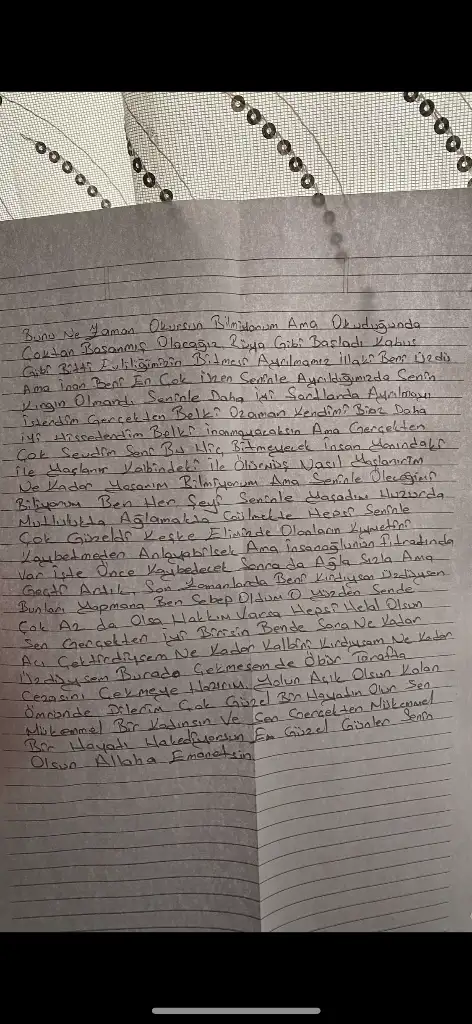 Bunu Ne Zaman Okursun Bilmiyorum Ama Okuduğunda
Çoktan Boşanmış Olacağız Rüya Gibi Başladı Kabus
Gibi Bitti Evliliğimizin Bitmesi Ayrılmamız illaki Beni Üzdü
Ama inan Beni En Çok Üzen Seninle Ayrıldığımızda Senin
Kırgın Olmandı Seninle Daha iyi Şartlarda Ayrılmayı
isterdim Gerçekten Belki Ozaman Kendimi Biraz Daha
iyi Hissederdim Belki inanmayacaksın Ama Gerçekten
Çok Sevdim Seni Bu Hiç Bitmeyecek insan Yanındaki
ile Yaşlanır Kalbindeki ile Ölürmüş Nasıl Yaşlanırım
Ne Kadar Yaşarım Bilmiyorum Ama Seninle Öleceğimi
Biliyorum Ben Her Şeyi Seninle Yaşadım Huzurda
Mutlulukta Ağlamakta Gülmekte Hepsi Seninle
Çok Güzeldi Keşke Elimizde Olanların Kıymetini
Kaybetmeden Anlayabilsek Ama insanoğlunun Fıtradında
Var işte Önce Kaybedecek Sonra da Ağla Sızla Ama
Geçti Artık Son Zamanlarda Beni Kırdıysan Üzdüysen
Bunları Yapmana Ben Sebep Oldum O Yüzden Sende
Çok Az da Olsa Hakkım Varsa Hepsi Helal Olsun
Sen Gerçekten iyi Birisin Bende Sana Ne Kadar
Acı Çektirdiysem Ne Kadar Kalbini Kırdıysam Ne Kadar
Üzdüysem Burada Çekmesem de Öbür Tarafta
Cezasını Çekmeye Hazırım Yolun Açık Olsun Kalan
Ömründe Dilerim Çok Güzel Bir Hayatın Olur Sen
Mükemmel Bir Kadınsın Ve Sen Gerçekten Mükemmel
Bir Hayatı Hakediyorsun En Güzel Günler Senin
Olsun Allaha Emanetsin